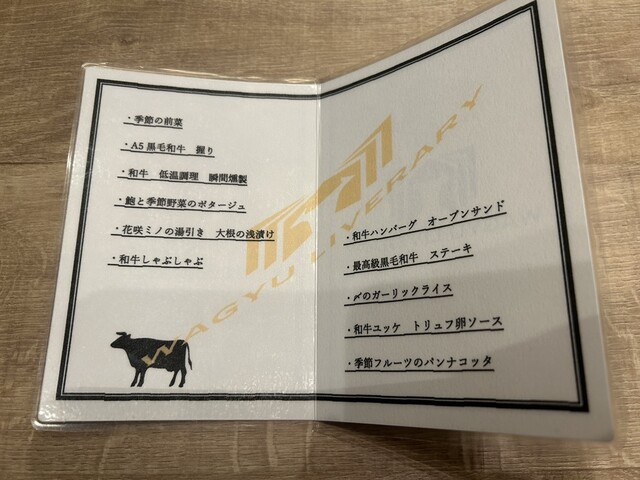 ・季節の前菜
・A5黒毛和牛　握り
・和牛　低温調理　瞬間燻製
・鮑と季節野菜のポタージュ
・花咲ミノの湯引き　大根の浅漬け
・和牛しゃぶしゃぶ
WAGYU LIVERARY
・和牛ハンバーグ　オープンサンド
・最高級黒毛和牛　ステーキ
・〆のガーリックライス
・和牛ユッケ　トリュフ卵ソース
・季節フルーツのパンナコッタ